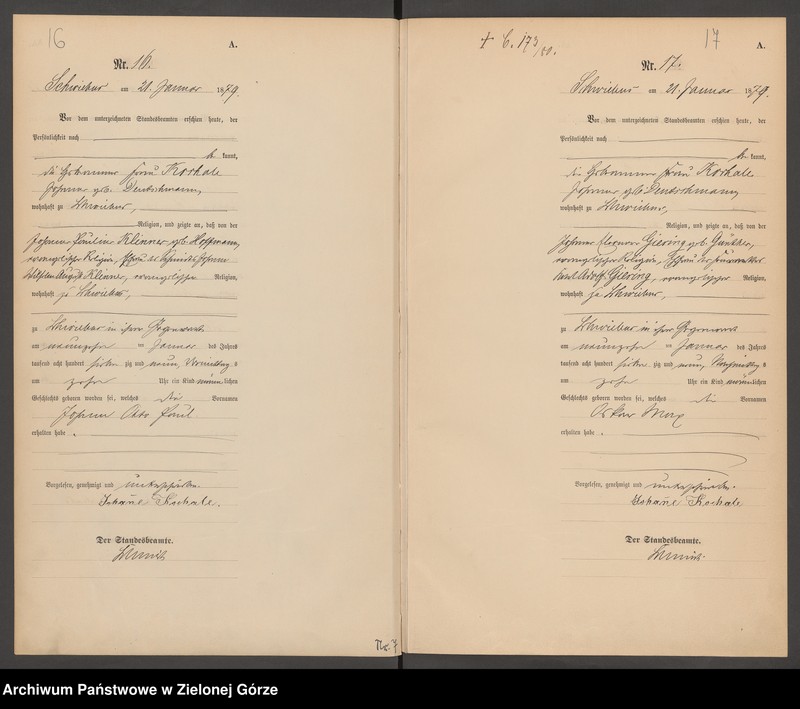 16
A.
Nr. 16.
Schwiebus am 21. Januar 1879.
Vor dem unterzeichneten Standesbeamten erschien heute, der
Persönlichkeit nach
be kannt,
die Hebamme Frau Koschale
Johanne geb. Deutschmann,
wohnhaft zu Schwiebus,
Religion, und zeigte an, daß von der
Johanne Pauline Klinner geb. Hoffmann,
evangelischer Religion, Ehefrau des
Wilhelm August Klinner, evangelischer Religion,
wohnhaft zu Schwiebus,
zu Schwiebus in ihrer Gegenwart
am neunzehn ten Januar des Jahres
tausend acht hundert sieben zig und neun, Vormittags
um zehn Uhr ein Kind männlichen
Geschlechts geboren worden sei, welches die Vornamen
Johann Otto Paul
erhalten habe.
Vorgelesen, genehmigt und unterschrieben.
Johane Koschale.
Der Standesbeamte.
№. 7
+ C. 173/80.
17
A.
Nr. 17.
Schwiebus am 21. Januar 1879.
Vor dem unterzeichneten Standesbeamten erschien heute, der
Persönlichkeit nach
be kannt,
die Hebamme Frau Koschale
Johanne geb. Deutschmann,
wohnhaft zu Schwiebus,
Religion, und zeigte an, daß von der
Johanne Giering geb. Günther,
evangelischer Religion, Ehefrau des
Karl Adolf Giering, evangelischer Religion,
wohnhaft zu Schwiebus,
zu Schwiebus in ihrer Gegenwart
am neunzehn ten Januar des Jahres
tausend acht hundert sieben zig und neun,
um zehn Uhr ein Kind männlichen
Geschlechts geboren worden sei, welches die Vornamen
Oskar Max
erhalten habe.
Vorgelesen, genehmigt und unterschrieben.
Johane Koschale
Der Standesbeamte.
Archiwum Państwowe w Zielonej Górze